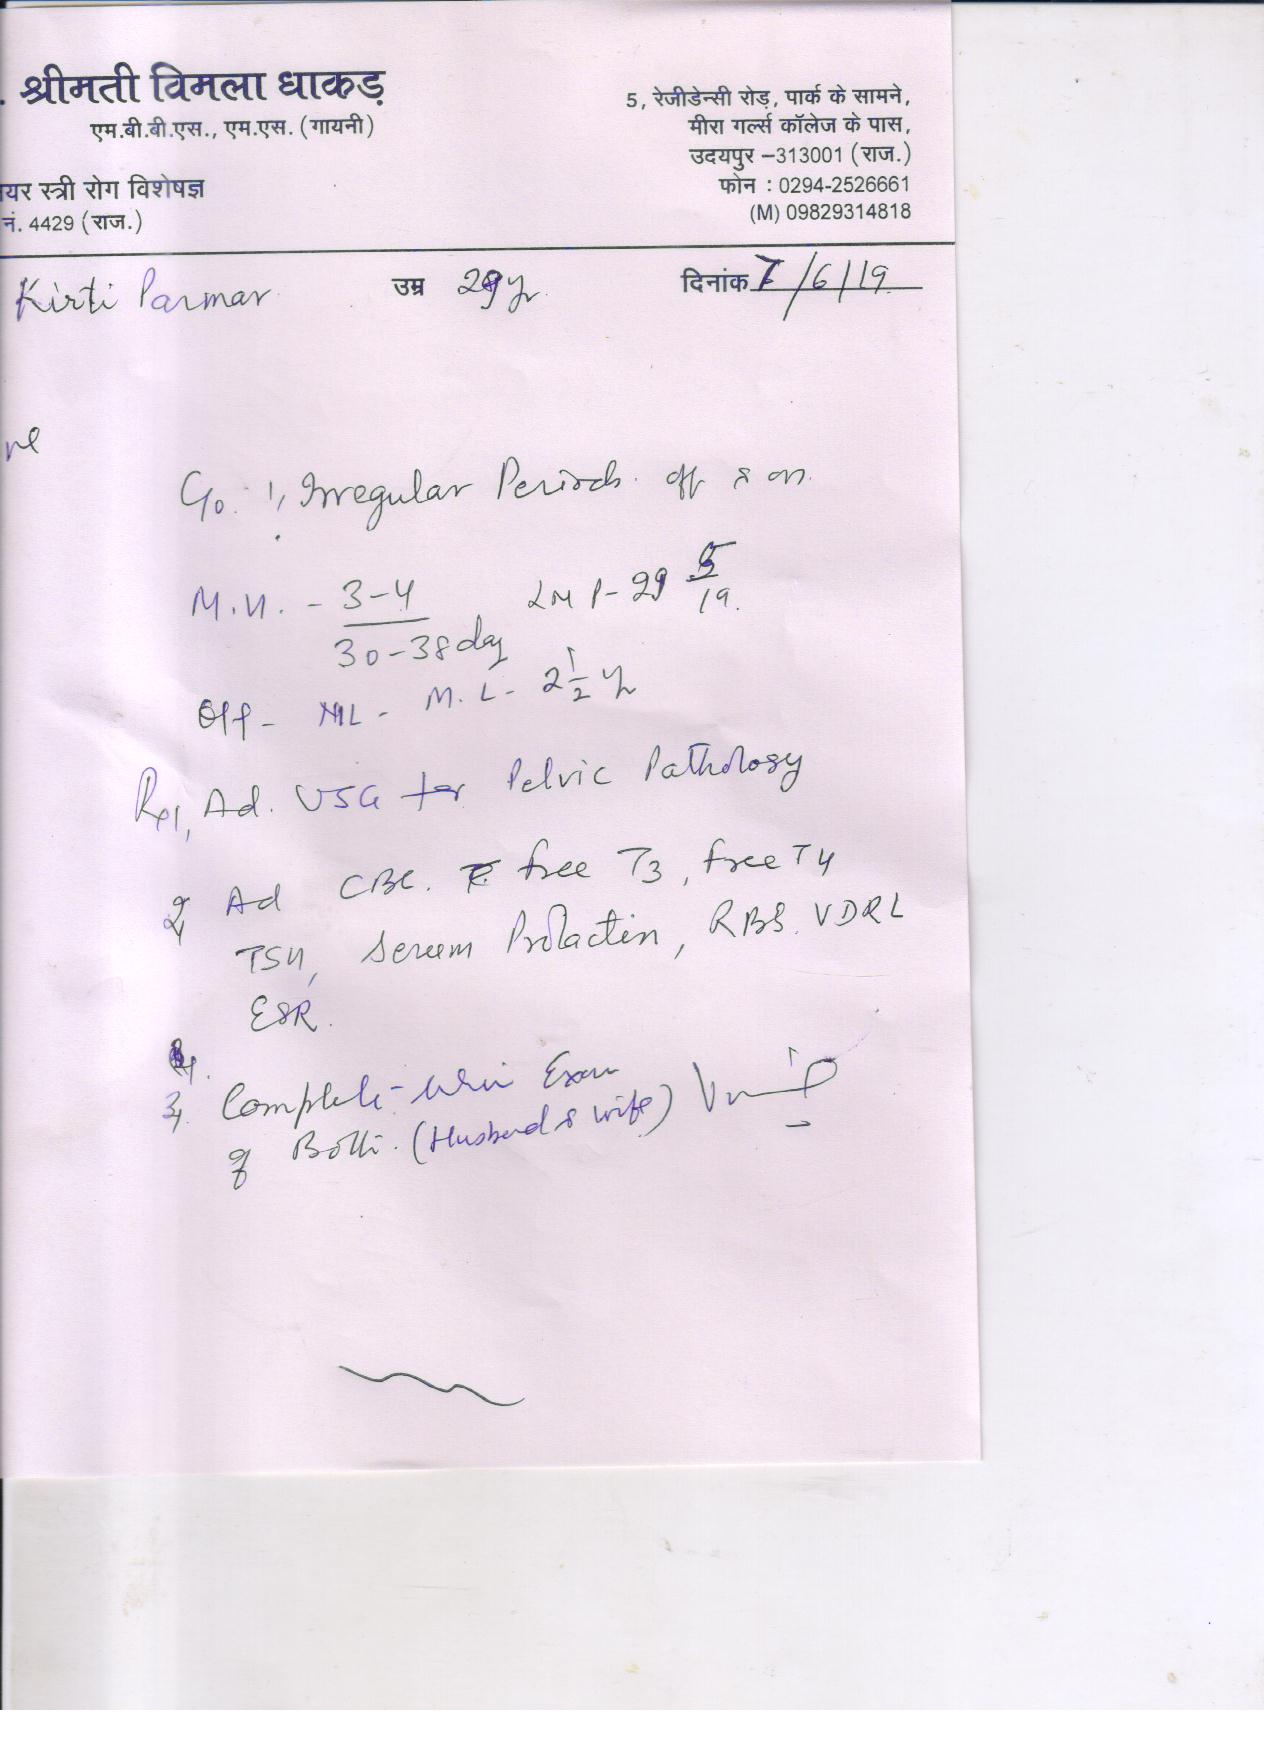 . श्रीमती विमला धाकड़
एम.बी.बी.एस., एम.एस. (गायनी)
यर स्त्री रोग विशेषज्ञ
नं. 4429 (राज.)
5, रेजीडेन्सी रोड़, पार्क के सामने,
मीरा गर्ल्स कॉलेज के पास,
उदयपुर -313001 (राज.)
फोन : 0294-2526661
(M) 09829314818
Kirti Parmar उम्र 29 yr दिनांक 7/6/19
C/o. 1, Irregular Periods. off & on.
M.H. - 3-4 LMP - 29 5
30-38 day 19.
NIL - M.L - 2 1/2 yr
Rx 1, Ad. USG for Pelvic Pathology
2, Ad CBC. free T3, free T4
TSH, Serum Prolactin, RBS. VDRL
ESR.
3, Complete Urine Exam
of Both. (Husband & wife)